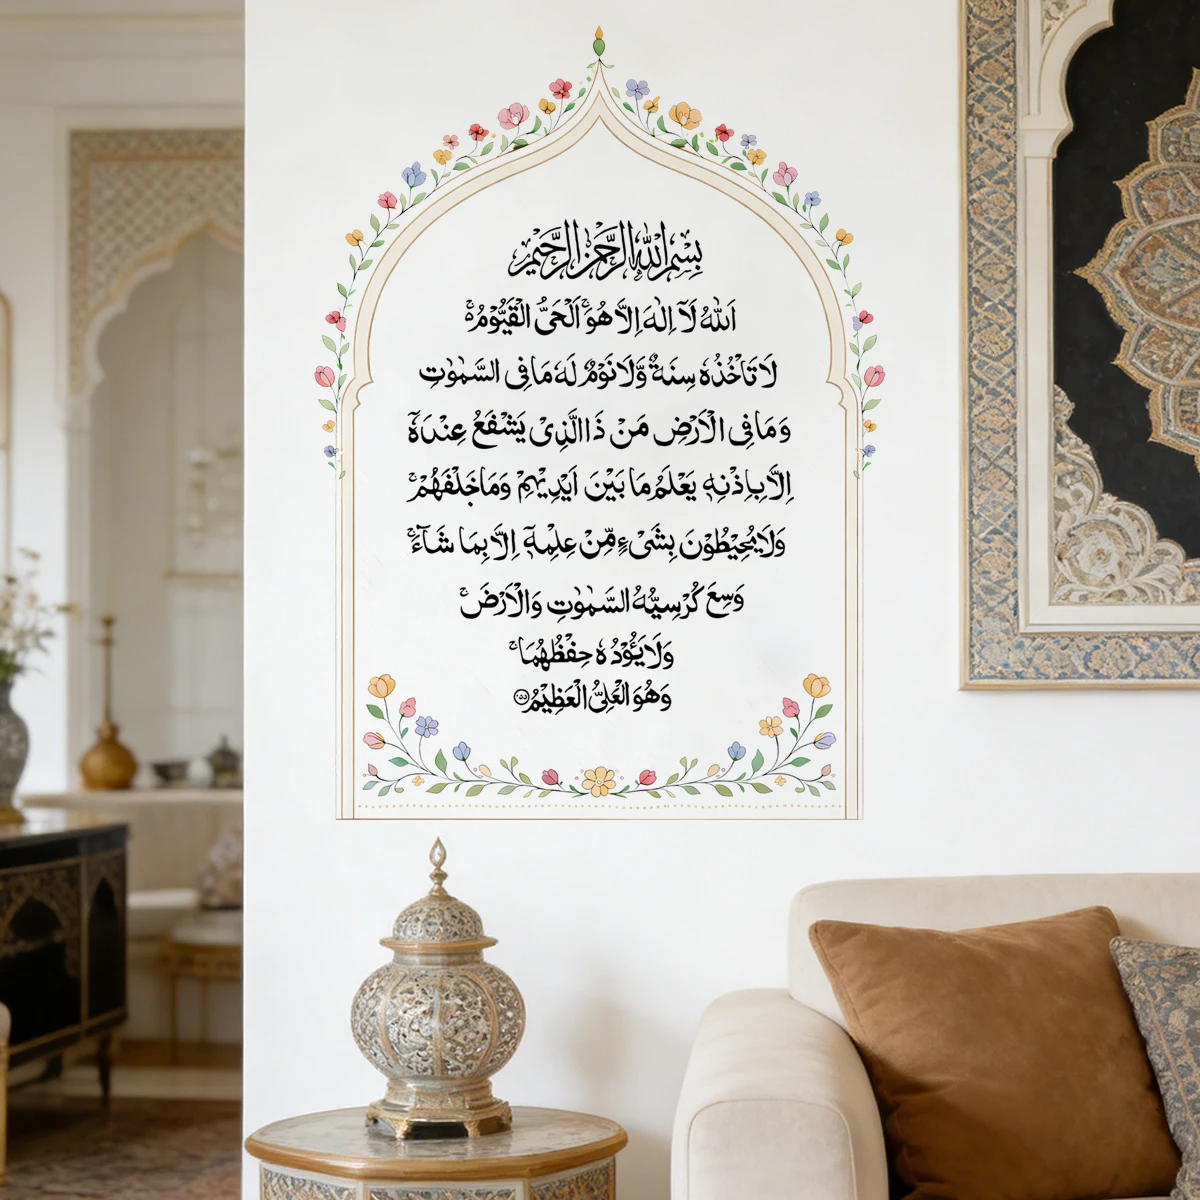 بِسْمِ اللهِ الرَّحْمٰنِ الرَّحِيْمِ
اَللهُ لَآ اِلٰهَ اِلَّا هُوَ ۚ اَلْحَىُّ الْقَيُّوْمُ ۚ
لَا تَاْخُذُهٗ سِنَةٌ وَّلَا نَوْمٌ لَهٗ مَا فِى السَّمٰوٰتِ
وَمَا فِى الْاَرْضِ مَنْ ذَا الَّذِىْ يَشْفَعُ عِنْدَهٗٓ
اِلَّا بِاِذْنِهٖ يَعْلَمُ مَا بَيْنَ اَيْدِيْهِمْ وَمَا خَلْفَهُمْ ۚ
وَلَا يُحِيْطُوْنَ بِشَىْءٍ مِّنْ عِلْمِهٖٓ اِلَّا بِمَا شَآءَ ۚ
وَسِعَ كُرْسِيُّهُ السَّمٰوٰتِ وَالْاَرْضَ ۚ
وَلَا يَؤُدُهٗ حِفْظُهُمَا ۚ
وَهُوَ الْعَلِىُّ الْعَظِيْمُ ۝۲۵۵